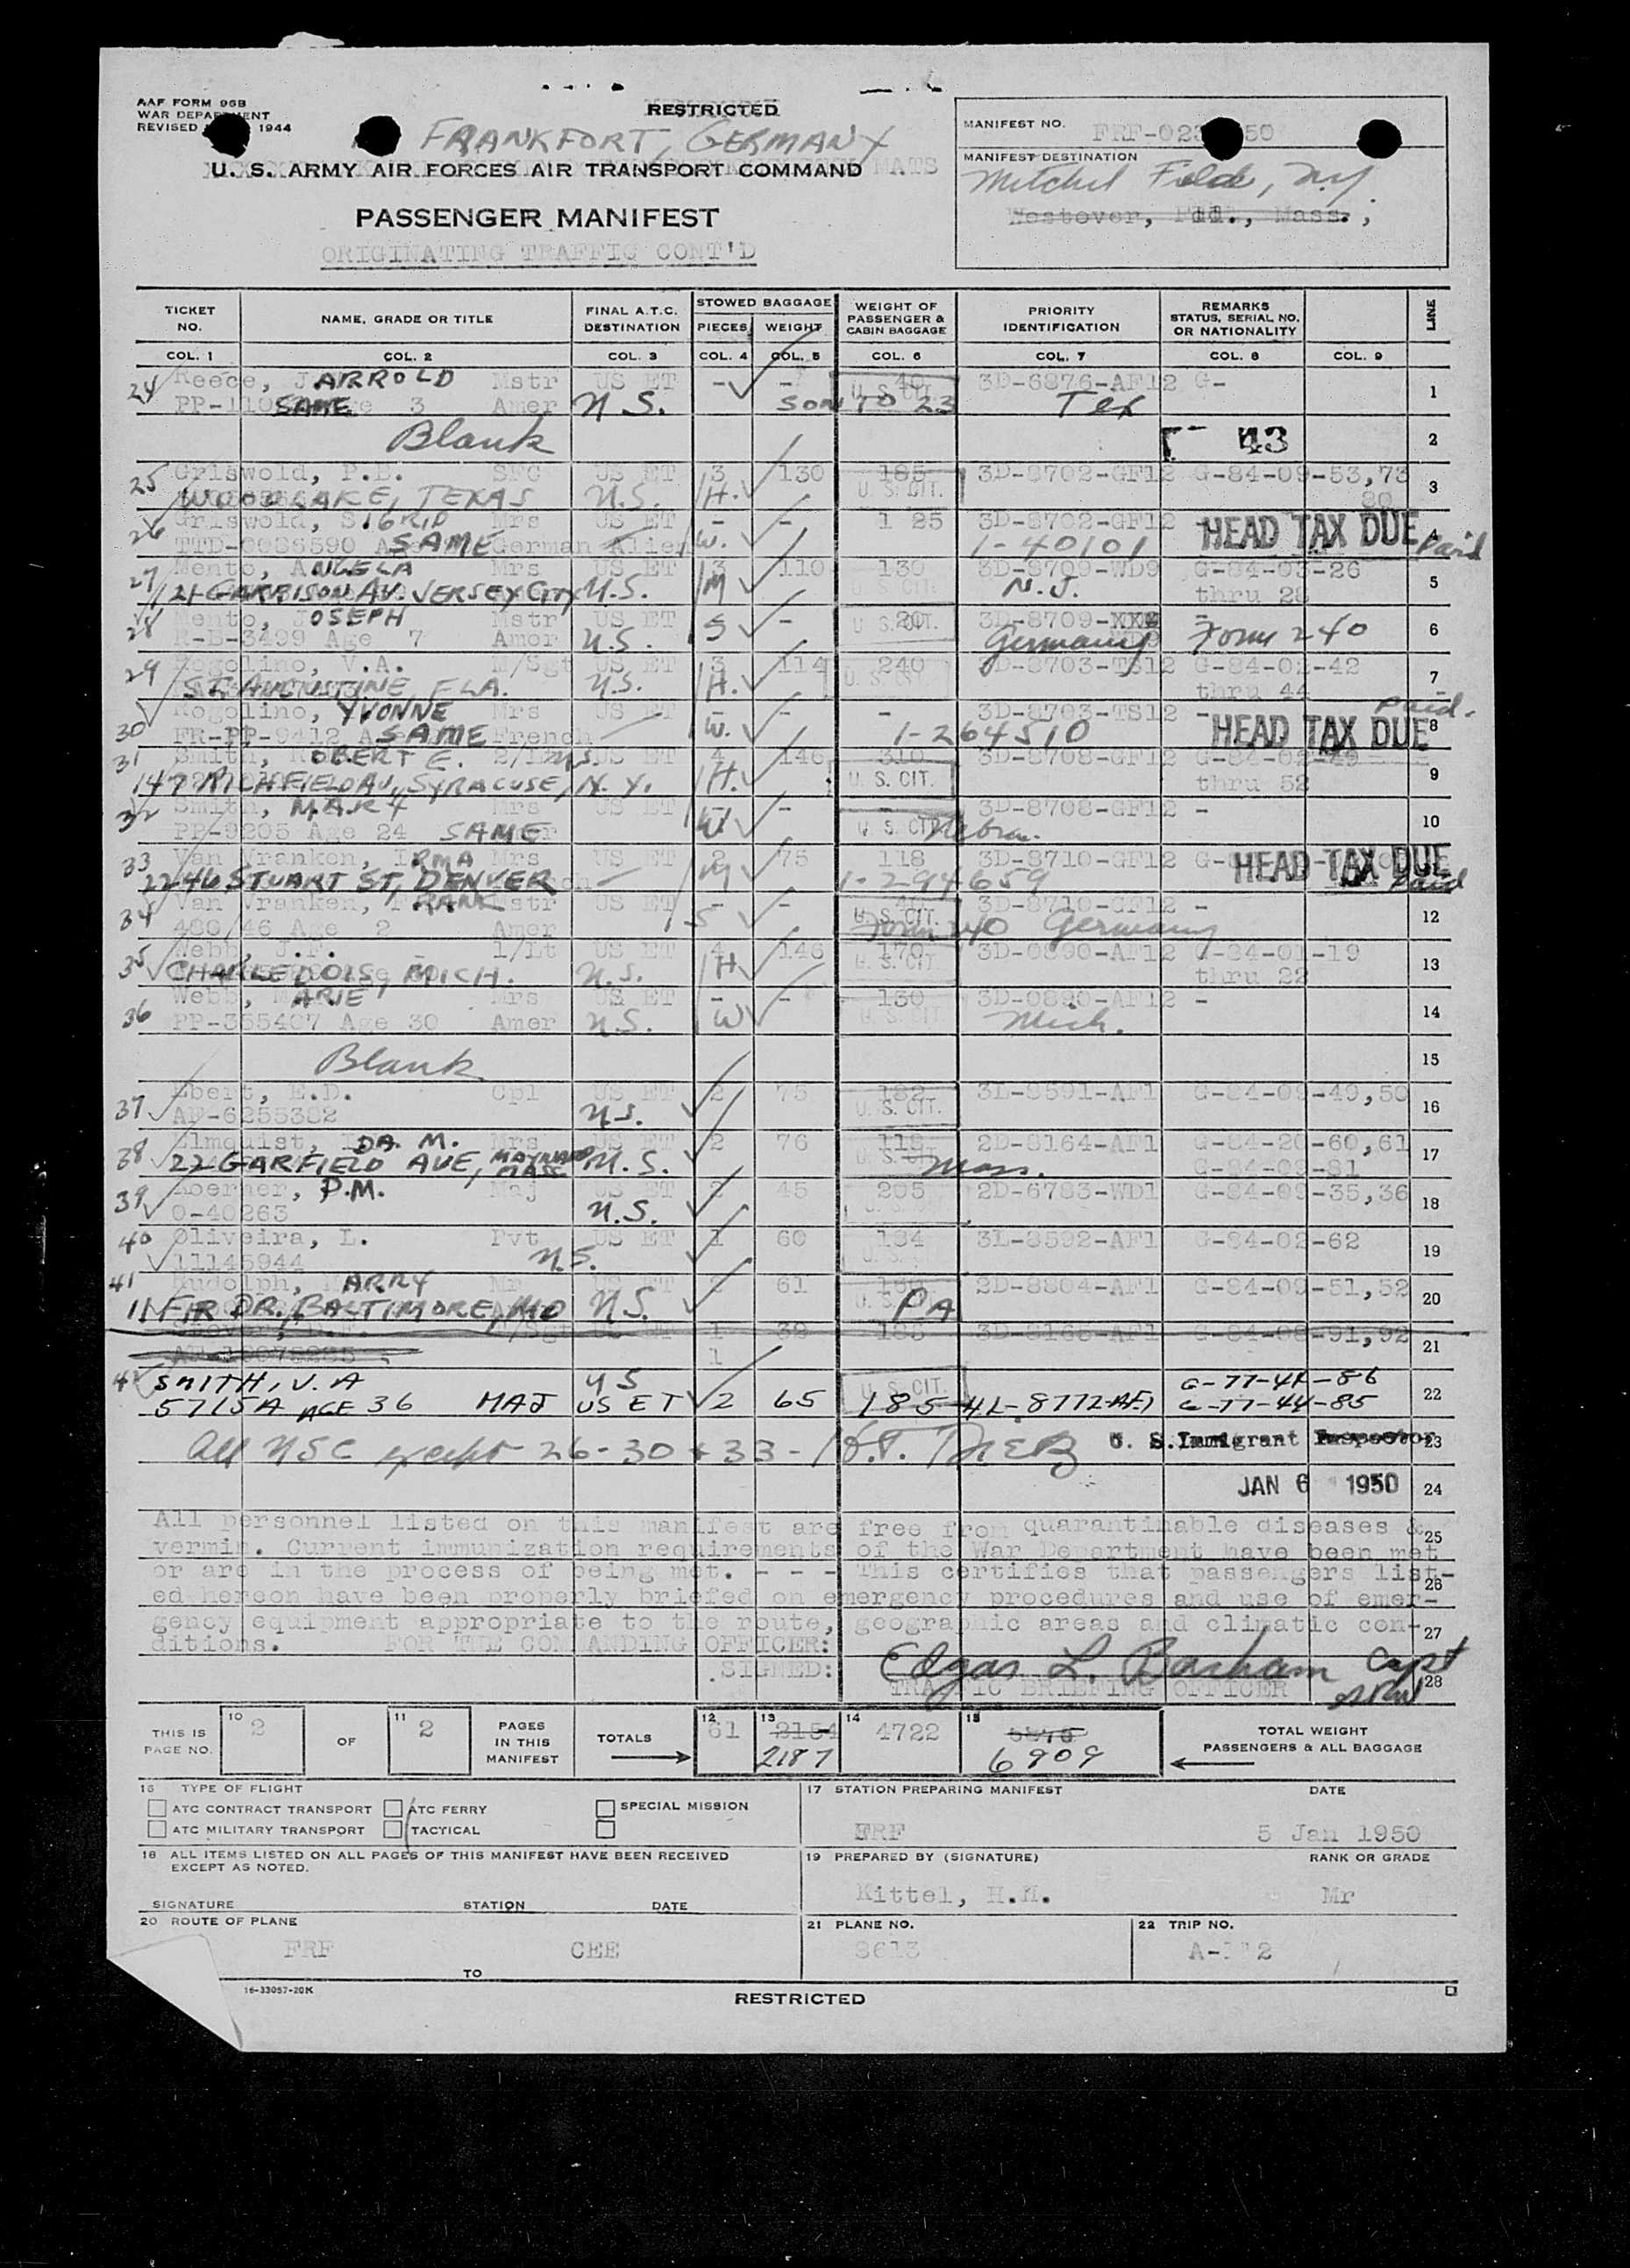 AAF FORM 96B
WAR DEPARTMENT
REVISED 1944
RESTRICTED
FRANKFORT, GERMANY
U. S. ARMY AIR FORCES AIR TRANSPORT COMMAND MATS
PASSENGER MANIFEST
ORIGINATING TRAFFIC CONT'D
MANIFEST NO. FRF-02 50
MANIFEST DESTINATION
Mitchel Field, N.Y.
Westover, Fld., Mass.,
TICKET NO. NAME, GRADE OR TITLE FINAL A.T.C. DESTINATION STOWED BAGGAGE PIECES WEIGHT WEIGHT OF PASSENGER & CABIN BAGGAGE PRIORITY IDENTIFICATION REMARKS STATUS, SERIAL NO. OR NATIONALITY LINE
COL. 1 COL. 2 COL. 3 COL. 4 COL. 5 COL. 6 COL. 7 COL. 8 COL. 9
24 Reece, JARROLD Mstr US ET - - 40 3D-6876-AF12 G- 1
SAME 3 Amer U.S. SON TO 23 U. S. CIT. Tex
Blank 43 2
25 Griswold, P.B. SFC US ET 3 130 185 3D-8702-GF12 G-84-09-53,73 3
WOODLAKE, TEXAS U.S. H. U. S. CIT. 80
26 Griswold, SIGRID Mrs US ET - - 1 25 3D-8702-GF12 HEAD TAX DUE Paid 4
TTD-0086590 SAME German Alien W. 1-40101
27 Mento, ANGELA Mrs US ET 3 110 130 3D-8709-WD9 G-84-03-26 5
121 GARRISON AV. JERSEY CITY U.S. M N.J. thru 28
28 Mento, JOSEPH Mstr US ET - 20 3D-8709-XXX - 6
R-B-3499 Age 7 Amer U.S. S U. S. CIT. Germany WD9 Form 240
29 Rogolino, V.A. M/Sgt US ET 3 114 240 3D-8703-TS12 G-84-02-42 7
ST. AUGUSTINE, FLA. U.S. H. U. S. CIT. thru 44
30 Rogolino, YVONNE Mrs US ET - - - 3D-8703-TS12 - Paid. 8
FR-PP-9412 SAME French W. 1-264510 HEAD TAX DUE
31 Smith, ROBERT E. US ET 4 146 310 3D-8708-GF12 G-84-02-49 9
147 RICHFIELD AV., SYRACUSE, N.Y. H. U. S. CIT. thru 52
32 Smith, MARY Mrs US ET - - - 3D-8708-GF12 - 10
PP-9205 Age 24 SAME W U. S. CIT. Nebra.
33 Van Vranken, IRMA Mrs US ET 2 75 118 3D-8710-GF12 HEAD TAX DUE
2246 STUART ST, DENVER M 1-294659 Paid
34 Van Vranken, FRANK Mstr US ET - - 3D-8710-GF12 - 12
480/46 Age 2 Amer S U. S. CIT. Form 240 Germany
35 Webb, J.F. 1/Lt US ET 4 146 170 3D-0890-AF12 G-84-01-19 13
CHARLEVOIS, MICH. U.S. H U. S. CIT. thru 22
36 Webb, MARIE Mrs US ET - - 130 3D-0890-AF12 - 14
PP-355407 Age 30 Amer U.S. W U. S. CIT. Mich.
Blank 15
37 Ebert, E.D. Cpl US ET 2 75 182 3L-8591-AF1 G-84-09-49,50 16
AF-6255382 U.S. U. S. CIT.
38 Elmquist, IDA M. Mrs US ET 2 76 118 2D-8164-AF1 G-84-20-60,61 17
22 GARFIELD AVE, MAYNARD MASS U.S. U. S. Mass. G-84-09-81
39 Koerner, P.M. Maj US ET 2 45 205 2D-6783-WD1 G-84-09-35,36 18
O-40263 U.S.
40 Oliveira, L. Pvt US ET 1 60 184 3L-8592-AF1 G-84-02-62 19
11145944 U.S.
41 Rudolph, HARRY Mr US ET 2 61 2D-8804-AF1 G-84-09-51,52 20
11 FIR DR. BALTIMORE, MD U.S. PA
M/Sgt US ET 1 39 186 3D-8165-AF1 G-84-08-91,92 21
1
42 SMITH, V. A US U. S. CIT. G-77-44-86 22
5715A AGE 36 MAJ US ET 2 65 185 4L-8772-AF1 G-77-44-85
All USC except 26-30 + 33 - U. S. Immigrant Inspector 23
JAN 6 1950 24
All personnel listed on this manifest are free from quarantinable diseases & 25
vermin. Current immunization requirements of the War Department have been met
or are in the process of being met. - - - This certifies that passengers list- 26
ed hereon have been properly briefed on emergency procedures and use of emer-
gency equipment appropriate to the route, geographic areas and climatic con- 27
ditions. FOR THE COMMANDING OFFICER:
SIGNED: Edgar L. Barham Capt 28
TRAFFIC BRIEFING OFFICER
THIS IS PAGE NO. 10 2 OF 11 2 PAGES IN THIS MANIFEST TOTALS 12 61 13 2154 2187 14 4722 15 6909 TOTAL WEIGHT PASSENGERS & ALL BAGGAGE
16 TYPE OF FLIGHT
ATC CONTRACT TRANSPORT ATC FERRY SPECIAL MISSION
ATC MILITARY TRANSPORT TACTICAL
17 STATION PREPARING MANIFEST DATE
FRF 5 Jan 1950
18 ALL ITEMS LISTED ON ALL PAGES OF THIS MANIFEST HAVE BEEN RECEIVED EXCEPT AS NOTED.
SIGNATURE STATION DATE
19 PREPARED BY (SIGNATURE) RANK OR GRADE
Kittel, H.M. Mr
20 ROUTE OF PLANE
FRF TO CEE
21 PLANE NO.
8613
22 TRIP NO.
16-33057-20K
RESTRICTED